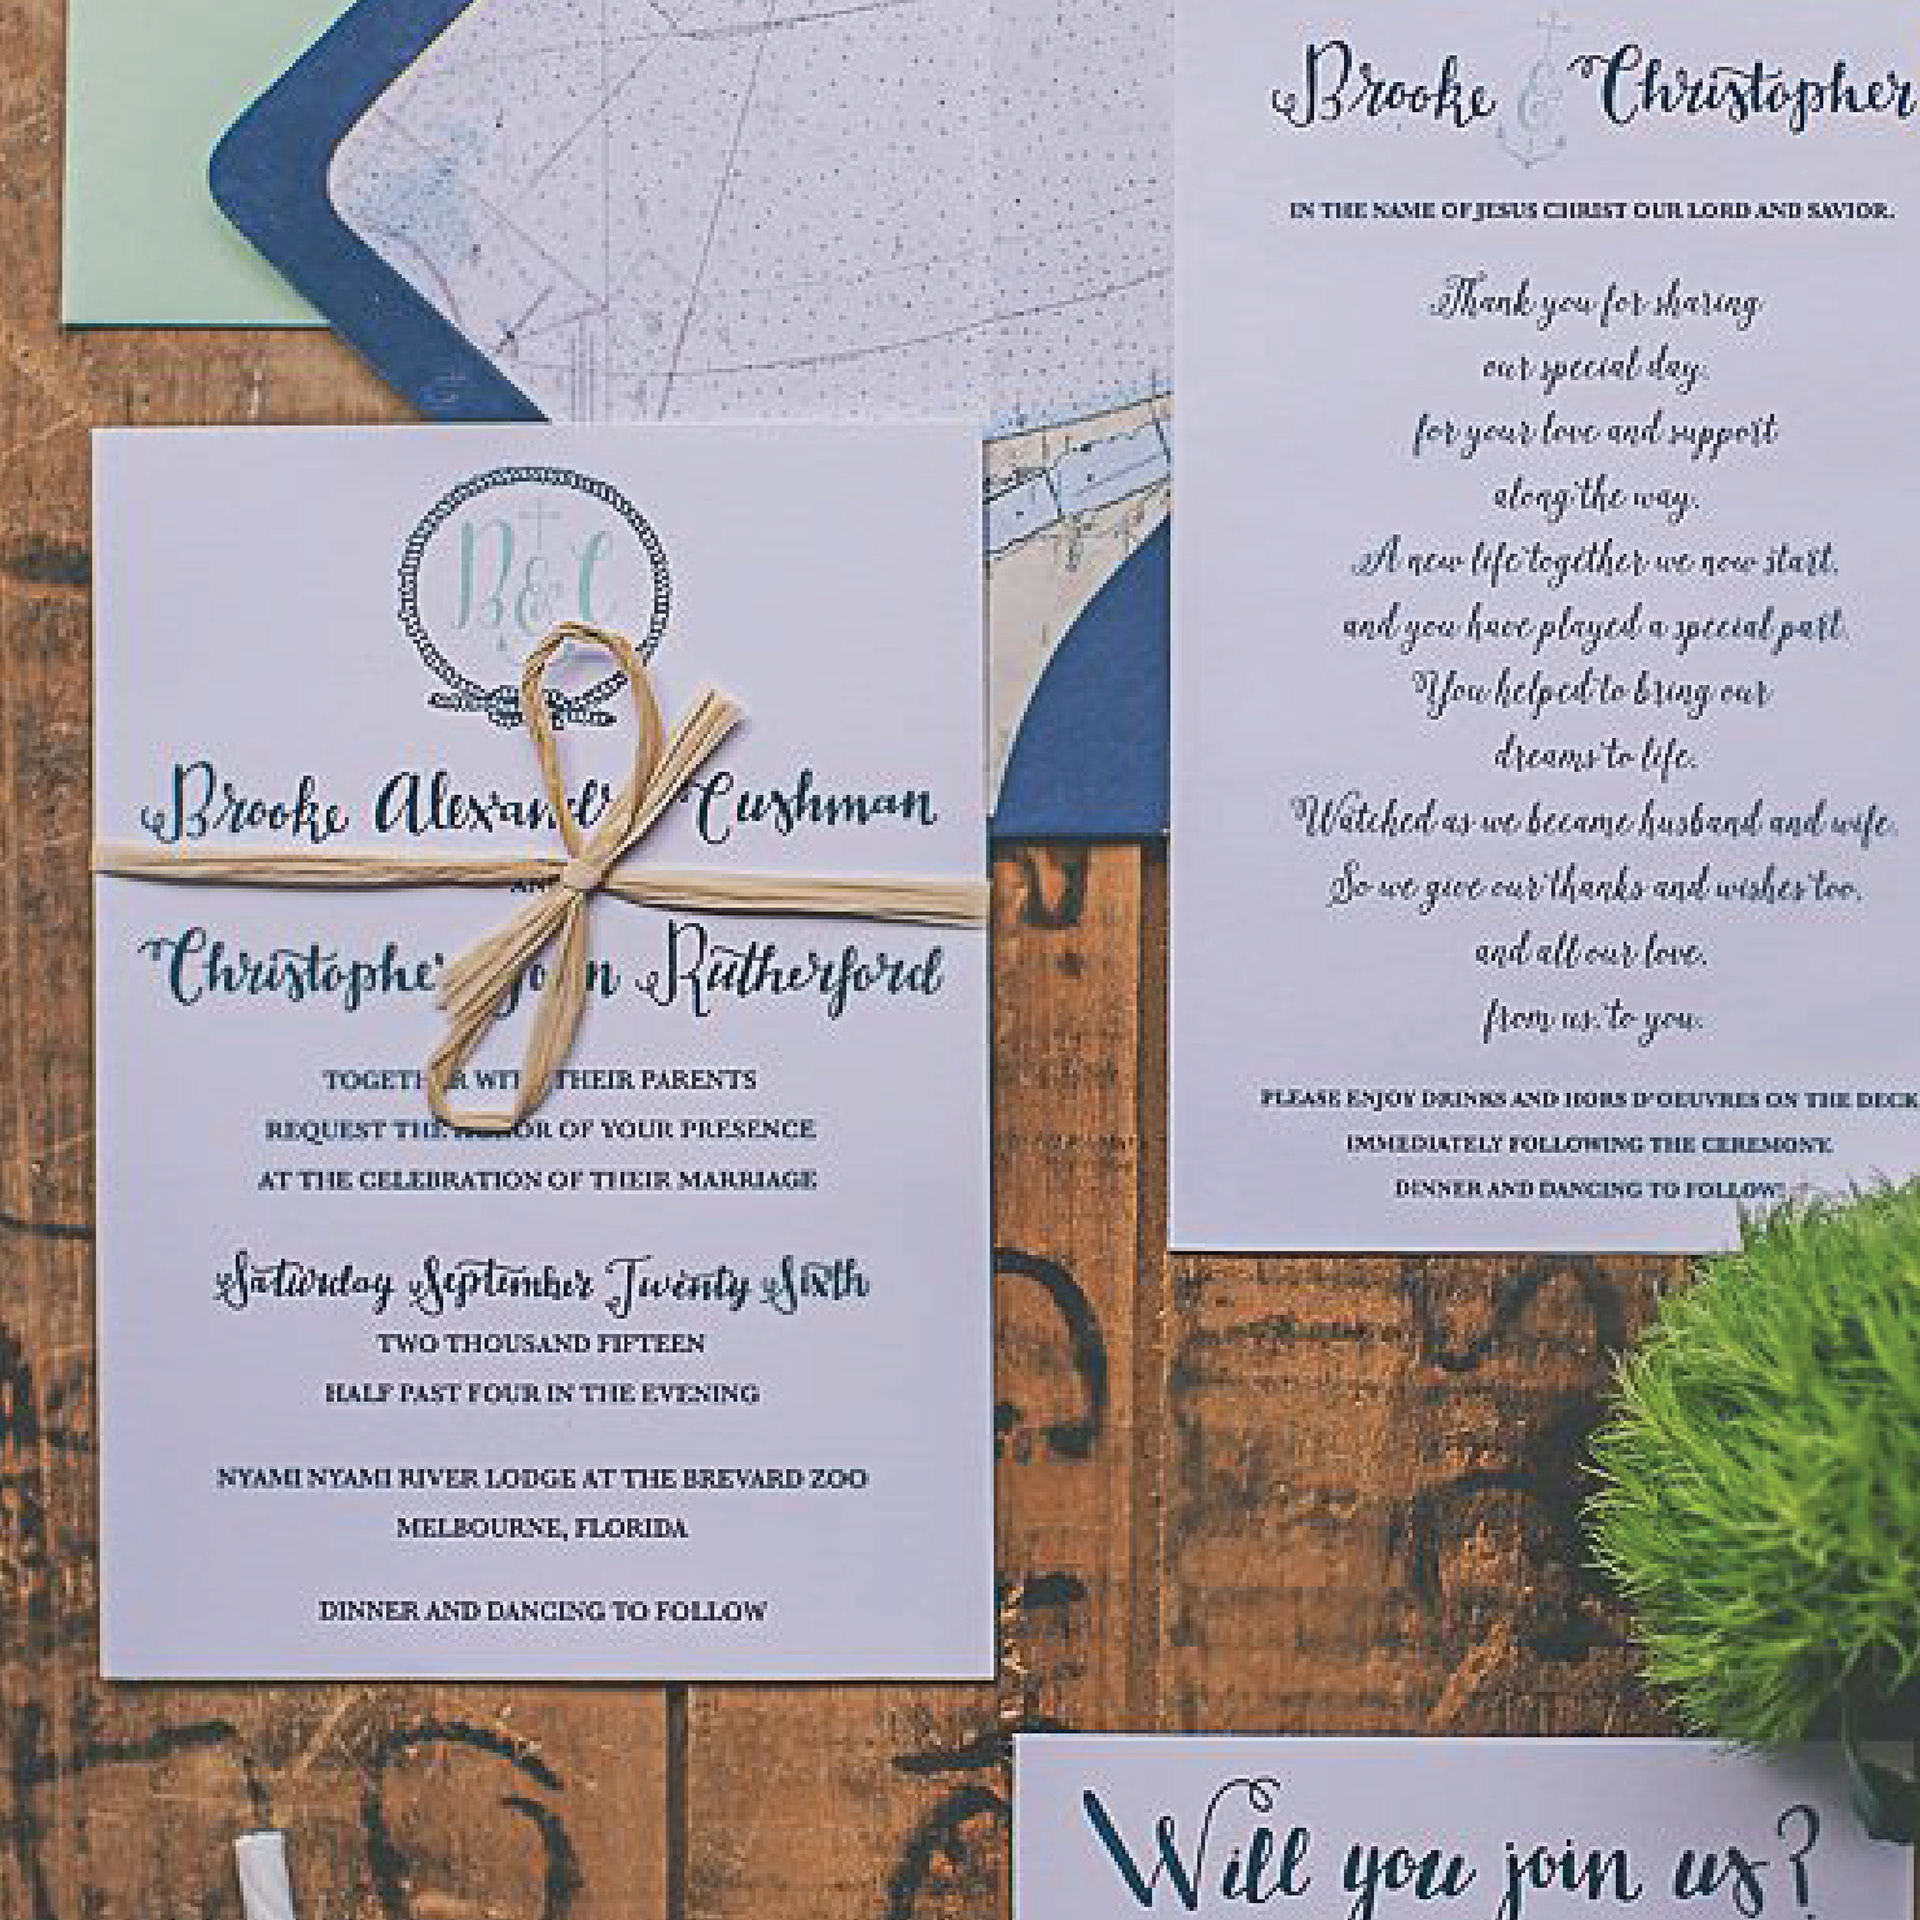 B & C
Brooke Cushman
Rutherford
TOGETHER WITH THEIR PARENTS
REQUEST THE HONOR OF YOUR PRESENCE
AT THE CELEBRATION OF THEIR MARRIAGE
Saturday September Twenty Sixth
TWO THOUSAND FIFTEEN
HALF PAST FOUR IN THE EVENING
NYAMI NYAMI RIVER LODGE AT THE BREVARD ZOO
MELBOURNE, FLORIDA
DINNER AND DANCING TO FOLLOW
Brooke & Christopher
IN THE NAME OF JESUS CHRIST OUR LORD AND SAVIOR.
Thank you for sharing
our special day,
for your love and support
along the way.
A new life together we now start,
and you have played a special part.
You helped to bring our
dreams to life.
Watched as we became husband and wife.
So we give our thanks and wishes too,
and all our love,
from us, to you.
PLEASE ENJOY DRINKS AND HORS D'OEUVRES ON THE DECK
IMMEDIATELY FOLLOWING THE CEREMONY.
DINNER AND DANCING TO FOLLOW!
Will you join us?